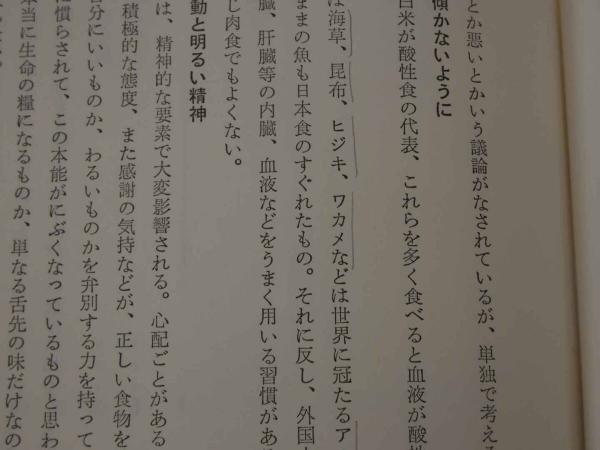 とか悪いとかいう議論がなされているが、単独で考える
傾かないように
白米が酸性食の代表、これらを多く食べると血液が酸性
は海草、昆布、ヒジキ、ワカメなどは世界に冠たるア
ままの魚も日本食のすぐれたもの。それに反し、外国
臓、肝臓等の内臓、血液などをうまく用いる習慣があ
じ肉食でもよくない。
動と明るい精神
は、精神的な要素で大変影響される。心配ごとがある
積極的な態度、また感謝の気持などが、正しい食物を
自分にいいものか、わるいものかを弁別する力を持って
に慣らされて、この本能がにぶくなっているものと思わ
本当に生命の糧になるものか、単なる舌先の味だけなの